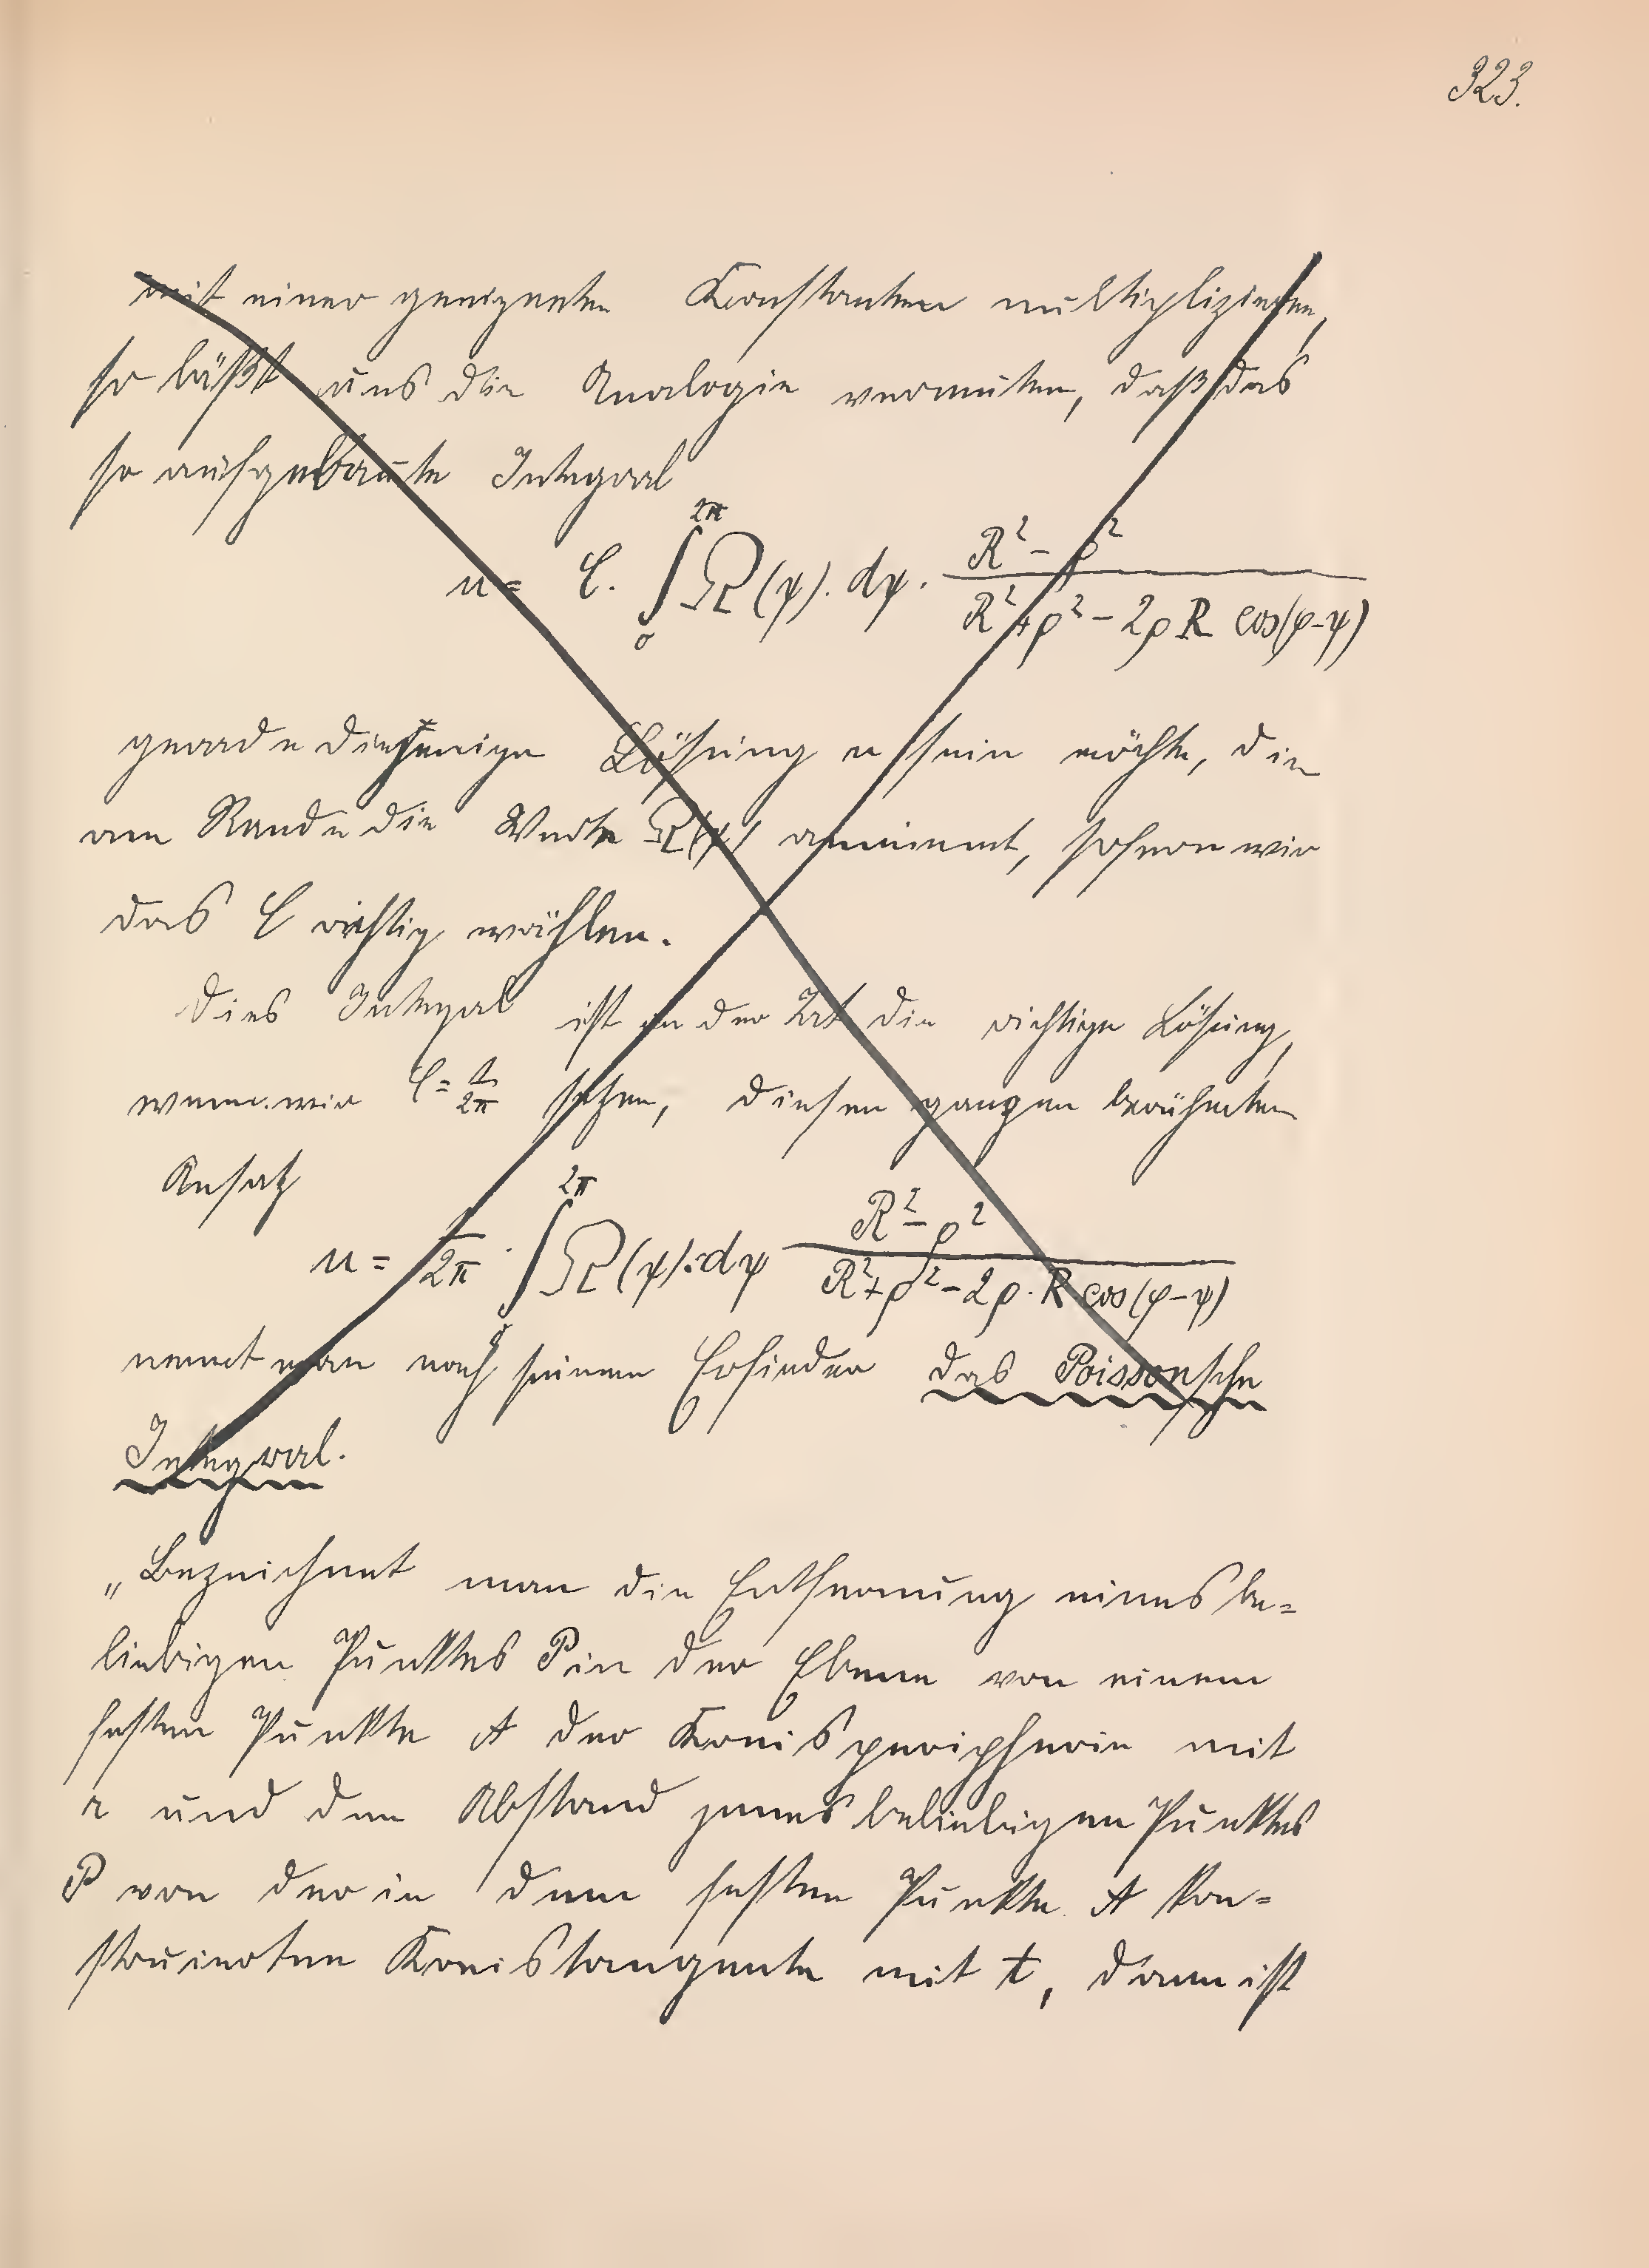 323.
mit einer geeigneten Konstanten multiplizieren,
so läßt uns die Analogie vermuten, daß das
so aufgebaute Integral
u = C. ∫₀^{2π} Ω(ψ). dψ. (R² - ρ²) / (R² + ρ² - 2ρ R cos(φ-ψ))
gerade diejenige Lösung u sein möchte, die
am Rande die Werte Ω(ψ) annimmt, sofern wir
das C richtig wählen.
Dies Integral ist in der Tat die richtige Lösung,
wenn wir C = 1/2π setzen, diesen ganzen berühmten
Ansatz
u = 1/2π · ∫₀^{2π} Ω(ψ).dψ (R² - ρ²) / (R² + ρ² - 2ρ. R cos(φ-ψ))
nennt man nach seinem Erfinder das Poissonsche
Integral.
„Bezeichnet man die Entfernung eines be=
liebigen Punktes P in der Ebene von einem
festen Punkte A der Kreisperipherie mit
r und den Abstand jenes beliebigen Punktes
P von der in dem festen Punkte A kon=
struierten Kreistangente mit t, dann ist